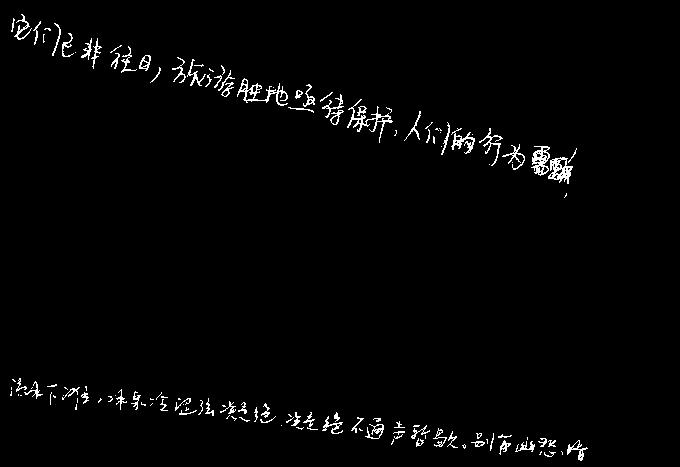 它们已非往日,旅游胜地亟待保护,人们的行为需
流水下滩,冰泉冷涩弦凝绝,凝绝不通声暂歇。别有幽愁暗